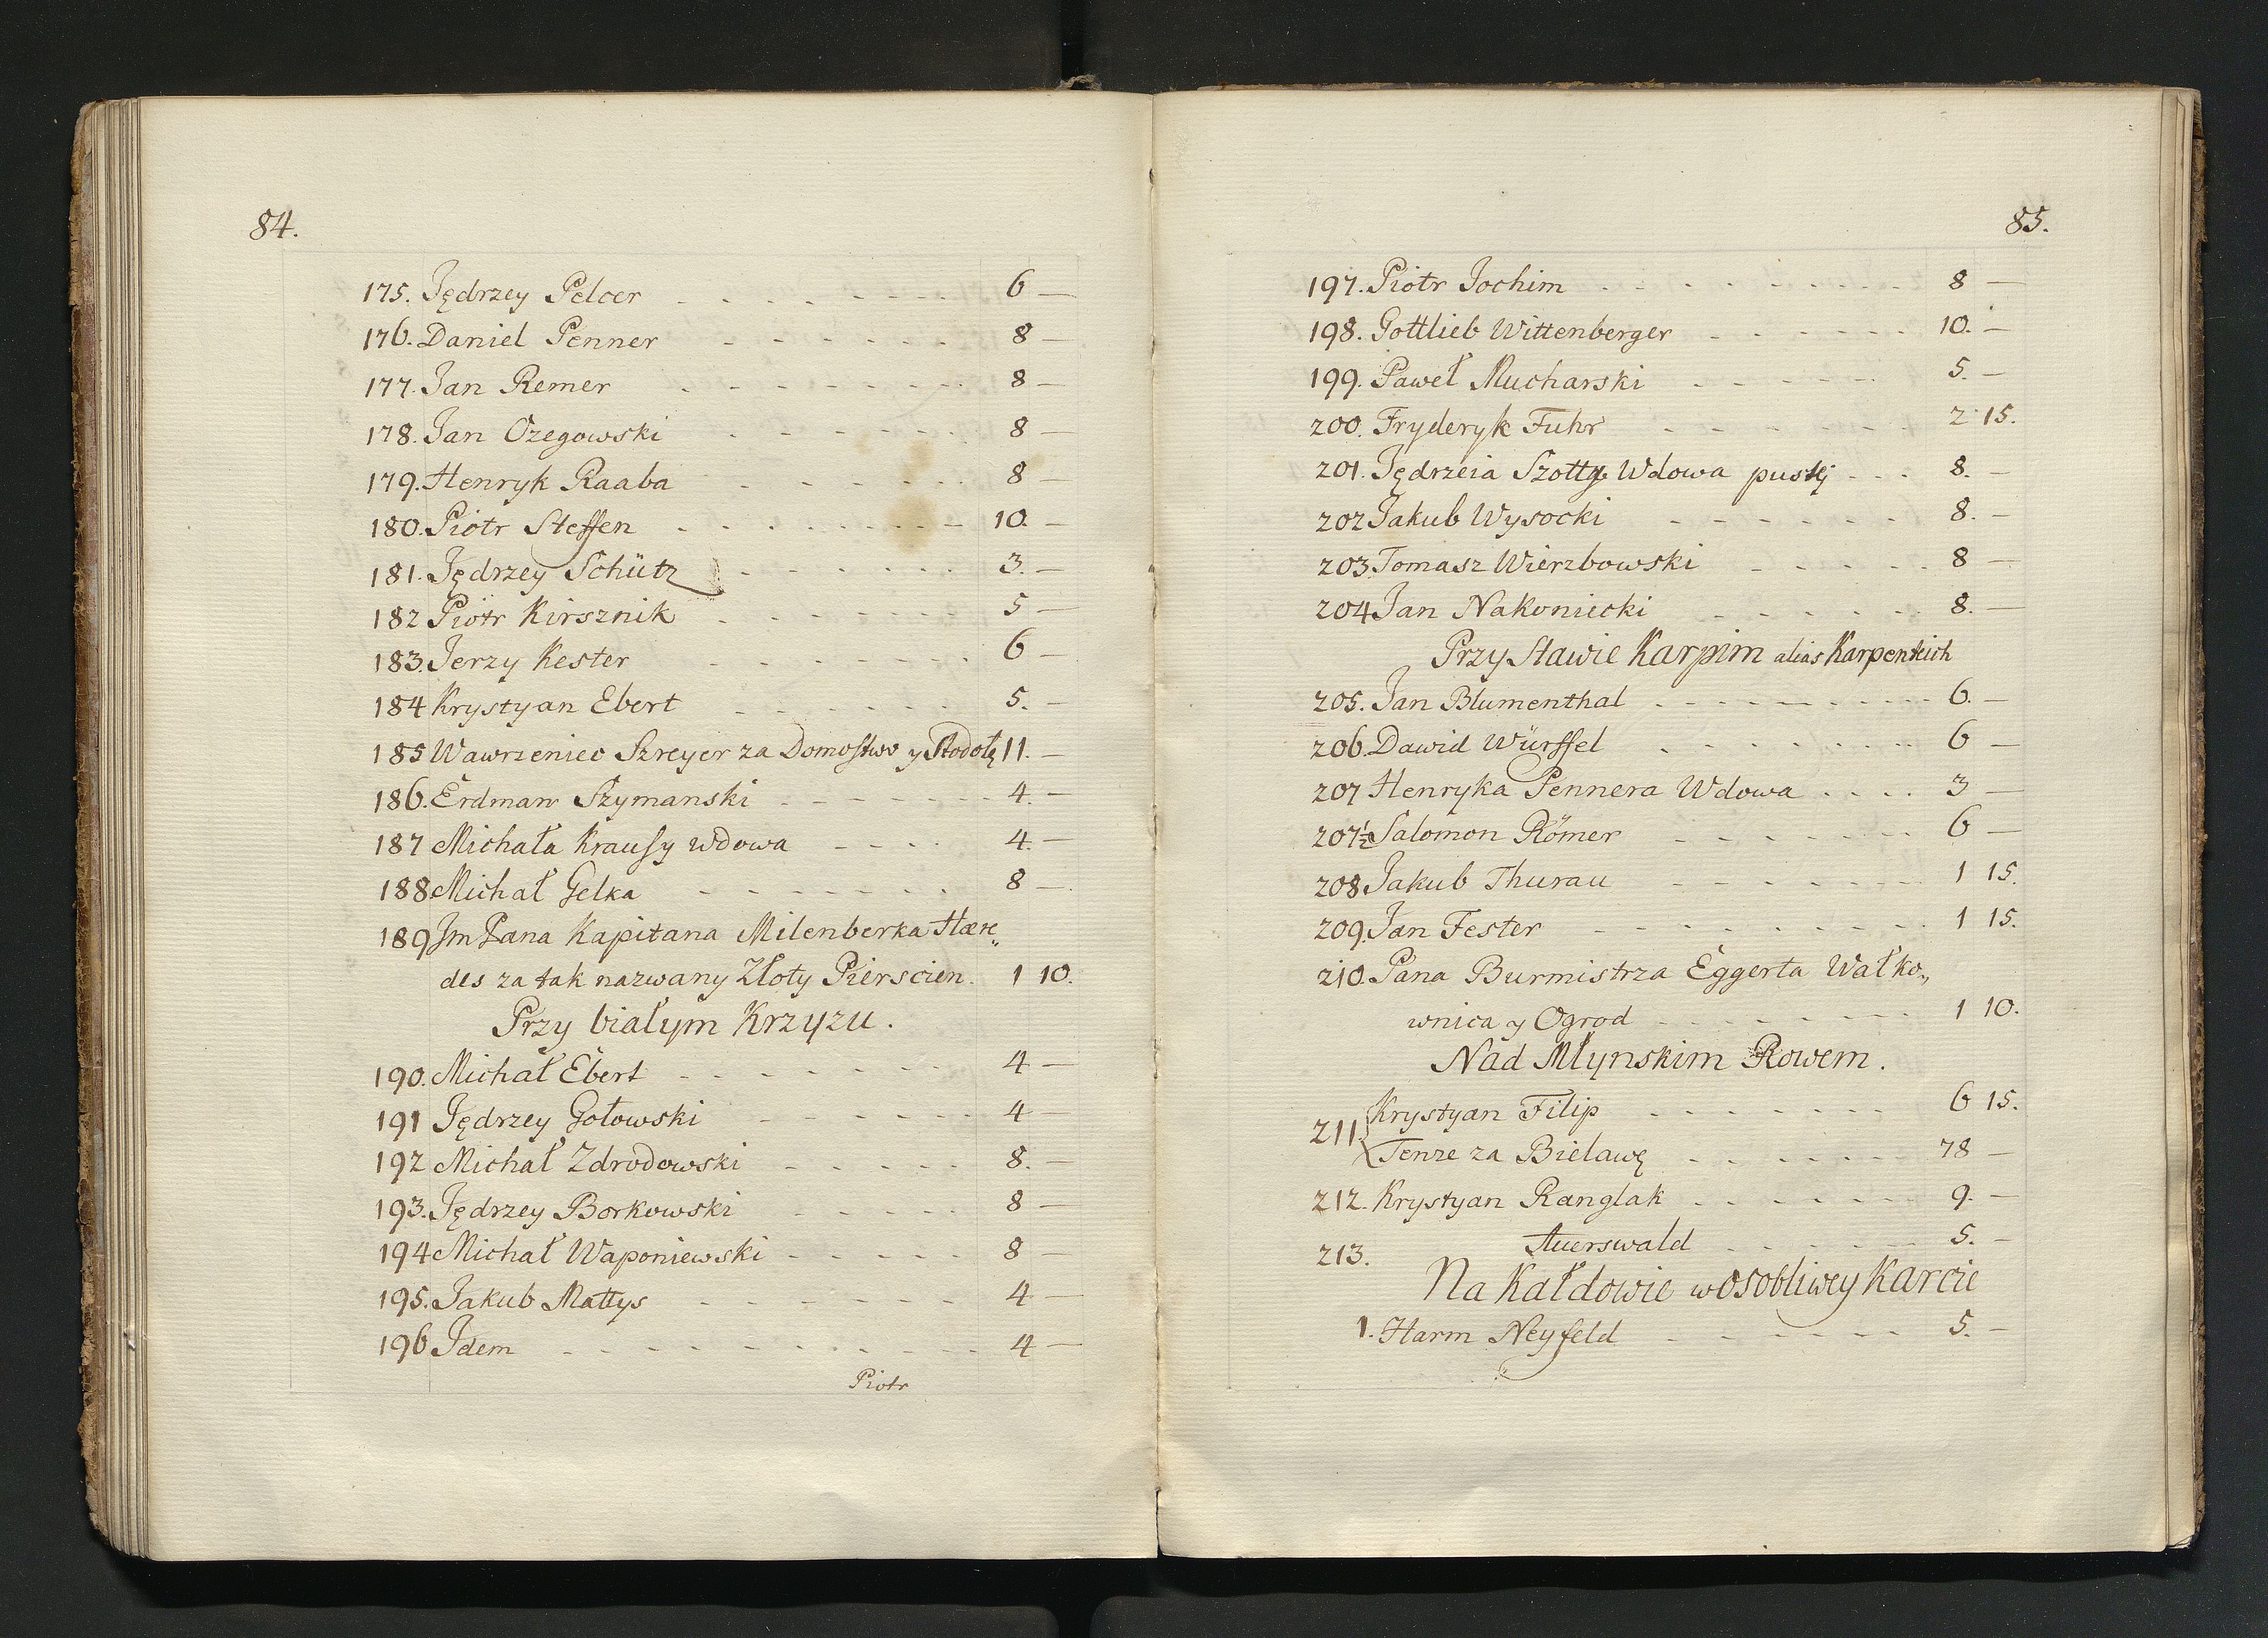 84.
175. Jędrzey Pelcer - - - - - - - 6 —
176. Daniel Penner - - - - - - - 8 —
177. Jan Remer - - - - - - - 8 —
178. Jan Ozegowski - - - - - - 8 —
179. Henryk Raaba - - - - - - 8 —
180. Piotr Steffen - - - - - - - 10. —
181. Jędrzey Schütz - - - - - - 3. —
182 Piotr Kirsznik - - - - - - 5 —
183. Jerzy Kester - - - - - - - 6 —
184 Krystyan Ebert - - - - - - 5. —
185 Wawrzeniec Szreyer za Domostwo y Stodołę 11. —
186. Erdman Szymanski - - - - - - 4. —
187 Michała Krausy wdowa - - - - 4. —
188 Michał Gelka - - - - - - - 8 —
189 Jm Pana Kapitana Milenberka Hære„
des za tak nazwany Złoty Pierscien. 1 10.
Przy białym Krzyzu.
190. Michał Ebert - - - - - - - 4 —
191 Jędrzey Gołowski - - - - - - 4 —
192 Michał Zdrodowski - - - - - 8. —
193. Jędrzey Borkowski - - - - - 8 —
194 Michał Waponiewski - - - - - 8 —
195. Jakub Mattys - - - - - - - 4 —
196 Idem - - - - - - - - - - 4 —
Piotr
85.
197. Piotr Jochim - - - - - - - - 8 —
198. Gottlieb Wittenberger - - - - - - 10. —
199. Paweł Mucharski - - - - - - 5. —
200. Fryderyk Fuhr - - - - - - - 2 15.
201. Jędrzeia Szotty Wdowa pustej - - - 8. —
202 Jakub Wysocki - - - - - - 8. —
203. Tomasz Wierzbowski - - - - - 8 —
204 Jan Nakoniecki - - - - - - 8. —
Przy Stawie Karpim alias Karpenteich
205. Jan Blumenthal - - - - - - - - 6. —
206. Dawid Würffel - - - - - - - 6 —
207 Henryka Pennera Wdowa - - - - 3 —
207½ Salomon Römer - - - - - - - 6 —
208 Jakub Thurau - - - - - - - 1 15.
209. Jan Fester - - - - - - - - 1 15.
210. Pana Burmistrza Eggerta Wałko„
wnica y Ogrod - - - - - - - 1 10.
Nad Młynskim Rowem.
211. Krystyan Filip - - - - - - - 6 15.
Tenze za Bielawę - - - - - - 78 —
212. Krystyan Ranglak - - - - - - 9. —
213. Auerswald - - - - - 5. —
Na Kałdowie w osobliwey Karcie
1. Harm Neyfeld - - - - - - 5. —